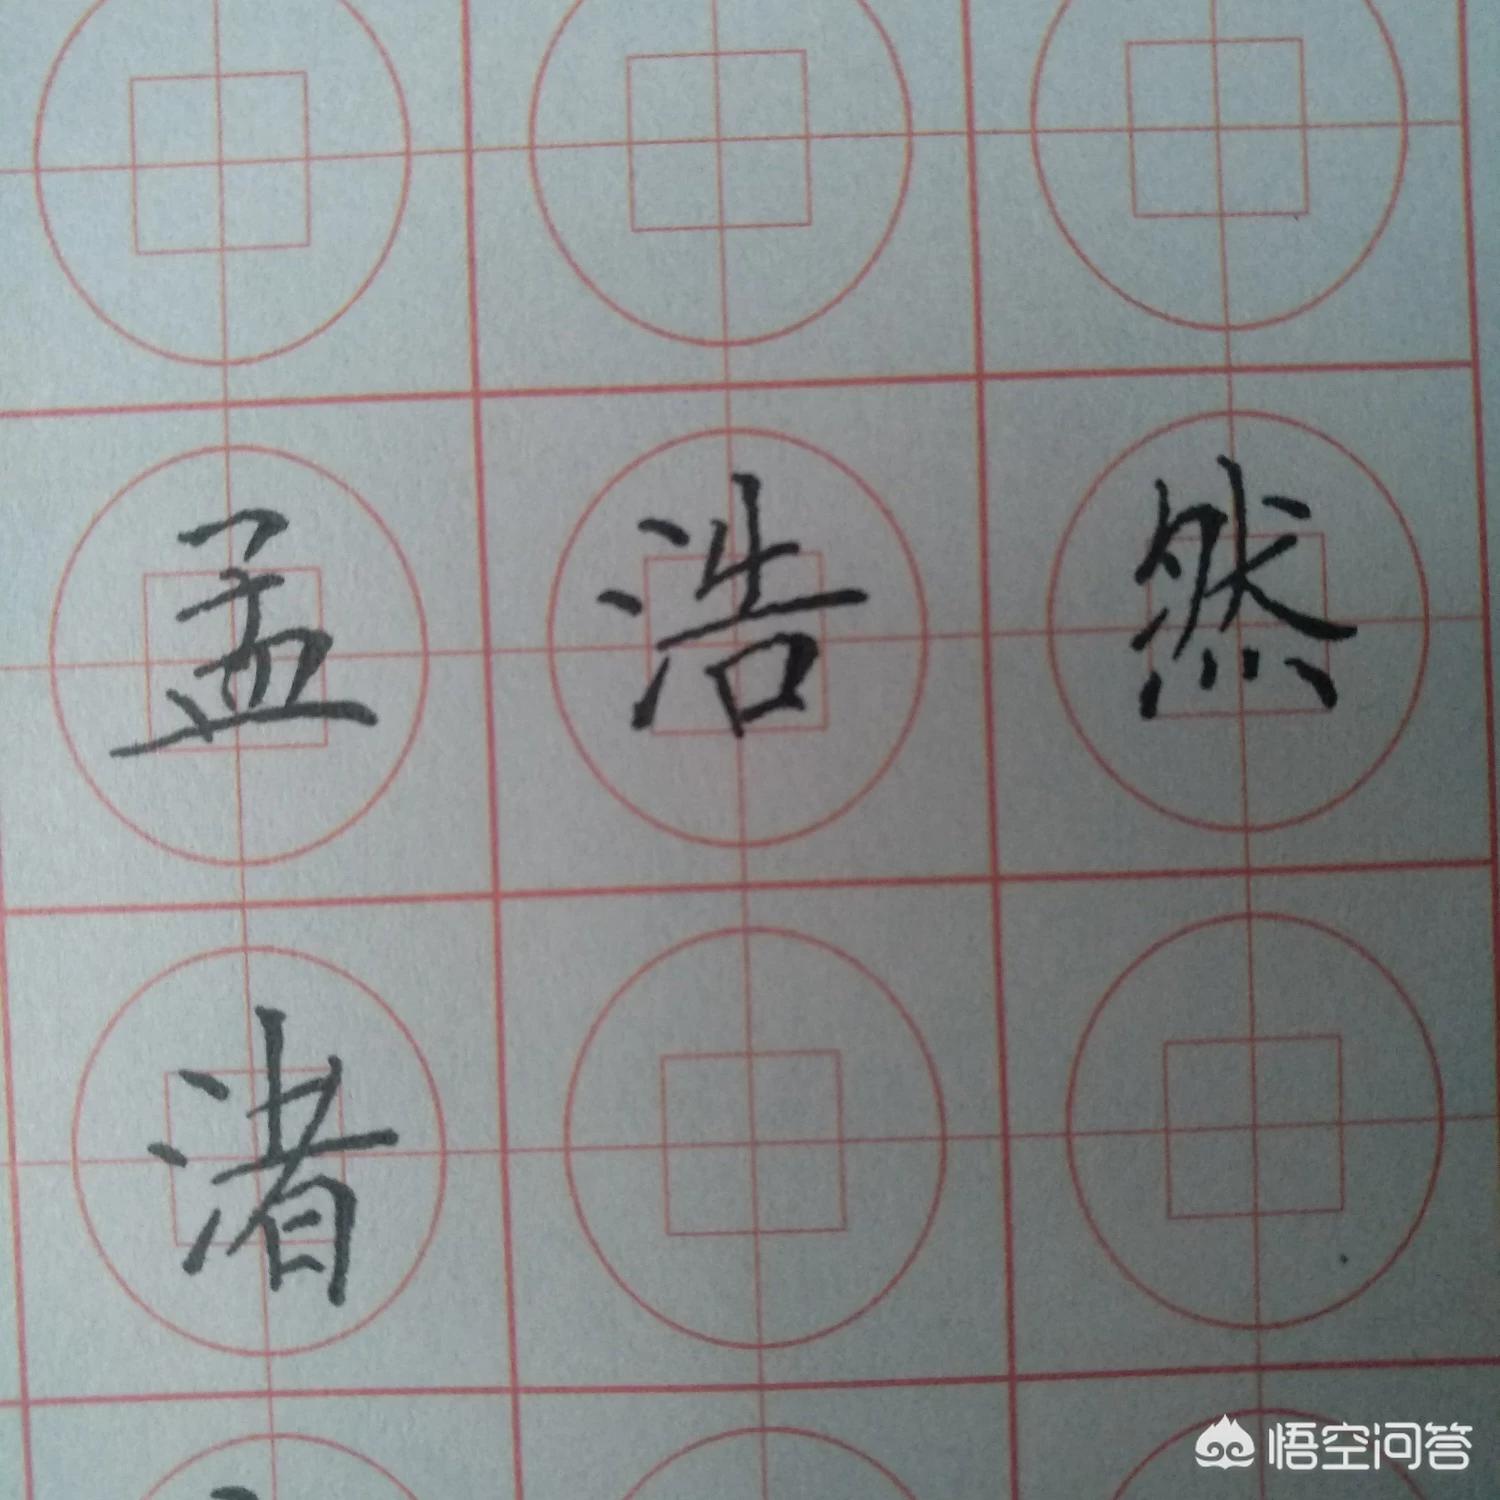 孟浩然
渚
悟空问答